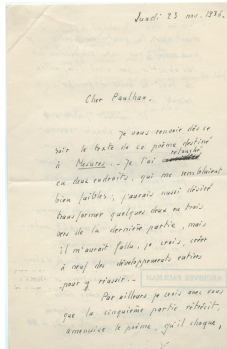 Lundi 23 nov. 1936.
Cher Paulhan,
Je vous renvoie dès ce
soir le texte de ce poème destiné
à Mesures. Je l'ai retouché
en deux endroits, qui me semblaient
bien faibles; j'aurais aussi désiré
transformer quelques deux ou trois
vers de la dernière partie, mais
il m'aurait fallu, je crois, créer
à neuf des développements entiers
pour y réussir.
Par ailleurs je crois avec vous
que la cinquième partie rétrécit,
amenuise le poème, qu'il choque,